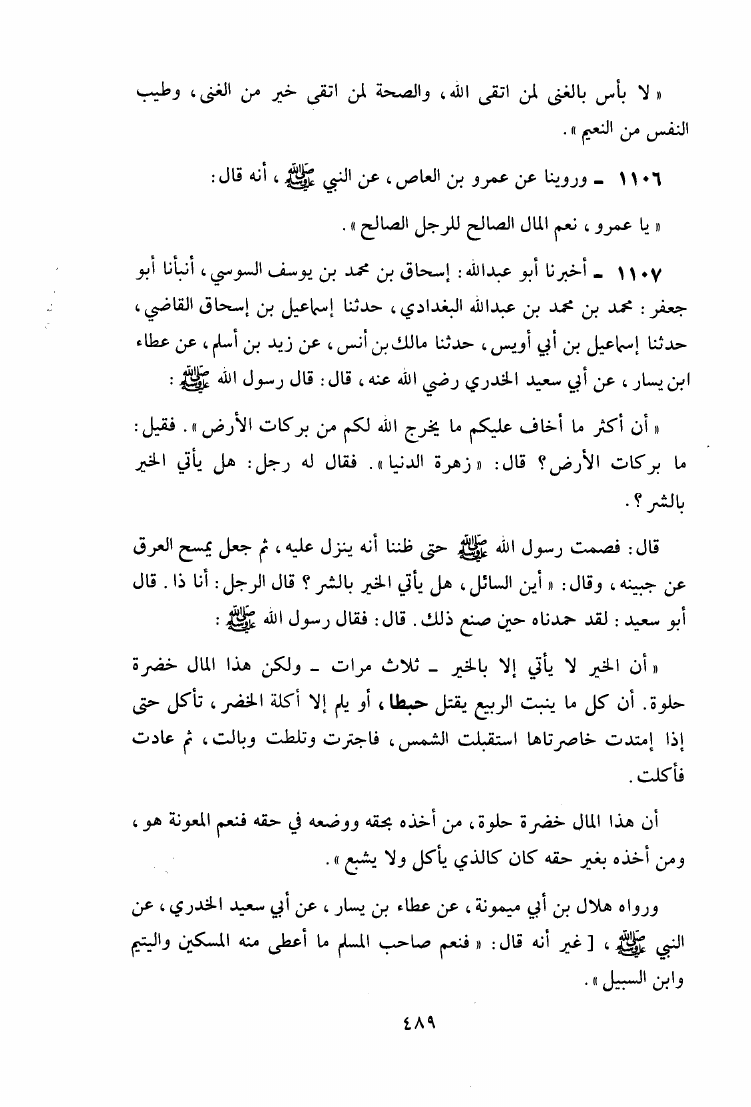 « لا بأس بالغنى لمن اتقى الله، والصحة لمن اتقى خير من الغنى، وطيب
النفس من النعيم ».
١١٠٦ ـ وروينا عن عمرو بن العاص، عن النبي ﷺ ، أنه قال:
« يا عمرو ، نعم المال الصالح للرجل الصالح ».
١١٠٧ ـ أخبرنا أبو عبدالله: إسحاق بن محمد بن يوسف السوسي، أنبأنا أبو
جعفر : محمد بن محمد بن عبدالله البغدادي، حدثنا إسماعيل بن إسحاق القاضي،
حدثنا إسماعيل بن أبي أويس، حدثنا مالك بن أنس، عن زيد بن أسلم، عن عطاء
ابن يسار ، عن أبي سعيد الخدري رضي الله عنه، قال: قال رسول الله ﷺ :
« أن أكثر ما أخاف عليكم ما يخرج الله لكم من بركات الأرض ». فقيل:
ما بركات الأرض؟ قال: « زهرة الدنيا ». فقال له رجل: هل يأتي الخير
بالشر ؟.
قال: فصمت رسول الله ﷺ حتى ظننا أنه ينزل عليه، ثم جعل يمسح العرق
عن جبينه، وقال: « أين السائل، هل يأتي الخير بالشر ؟ قال الرجل: أنا ذا. قال
أبو سعيد : لقد حمدناه حين صنع ذلك. قال: فقال رسول الله ﷺ :
« أن الخير لا يأتي إلا بالخير ـ ثلاث مرات ـ ولكن هذا المال خضرة
حلوة. أن كل ما ينبت الربيع يقتل حبطا، أو يلم إلا أكلة الخضر ، تأكل حتى
إذا إمتدت خاصرتاها استقبلت الشمس، فاجترت وتلطت وبالت، ثم عادت
فأكلت.
أن هذا المال خضرة حلوة، من أخذه بحقه ووضعه في حقه فنعم المعونة هو ،
ومن أخذه بغير حقه كان كالذي يأكل ولا يشبع ».
ورواه هلال بن أبي ميمونة، عن عطاء بن يسار ، عن أبي سعيد الخدري، عن
النبي ﷺ ، [ غير أنه قال: « فنعم صاحب المسلم ما أعطى منه المسكين واليتيم
وابن السبيل ».
٤٨٩